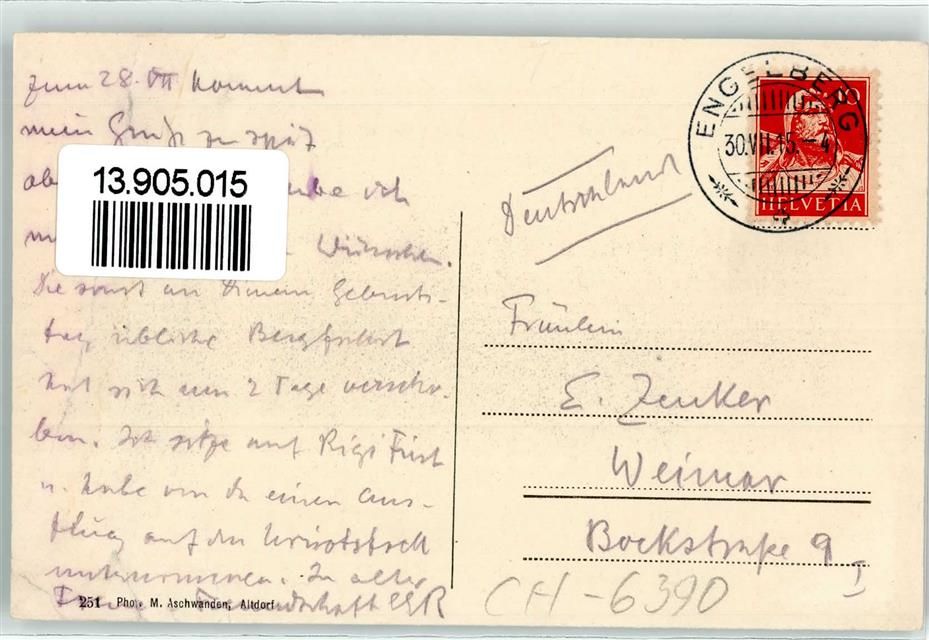 zum 28. VII kommt
mein Gruß zu spät
13.905.015
ich
Wünschen.
Die sonst an Deinem Geburts-
tag übliche Bergfahrt
hat sich um 2 Tage verscho-
ben. Ich sitze auf Rigi First
u. habe von da einen Aus-
flug auf den Urirotstock
unternommen. In alter
Freundschaft
251 Pho. M. Aschwanden, Altdorf
ENGELBERG
30.VII.15.–4
HELVETIA
Deutschland
Fräulein
E. Zenker
Weimar
Bockstraße 9 I
CH-6390